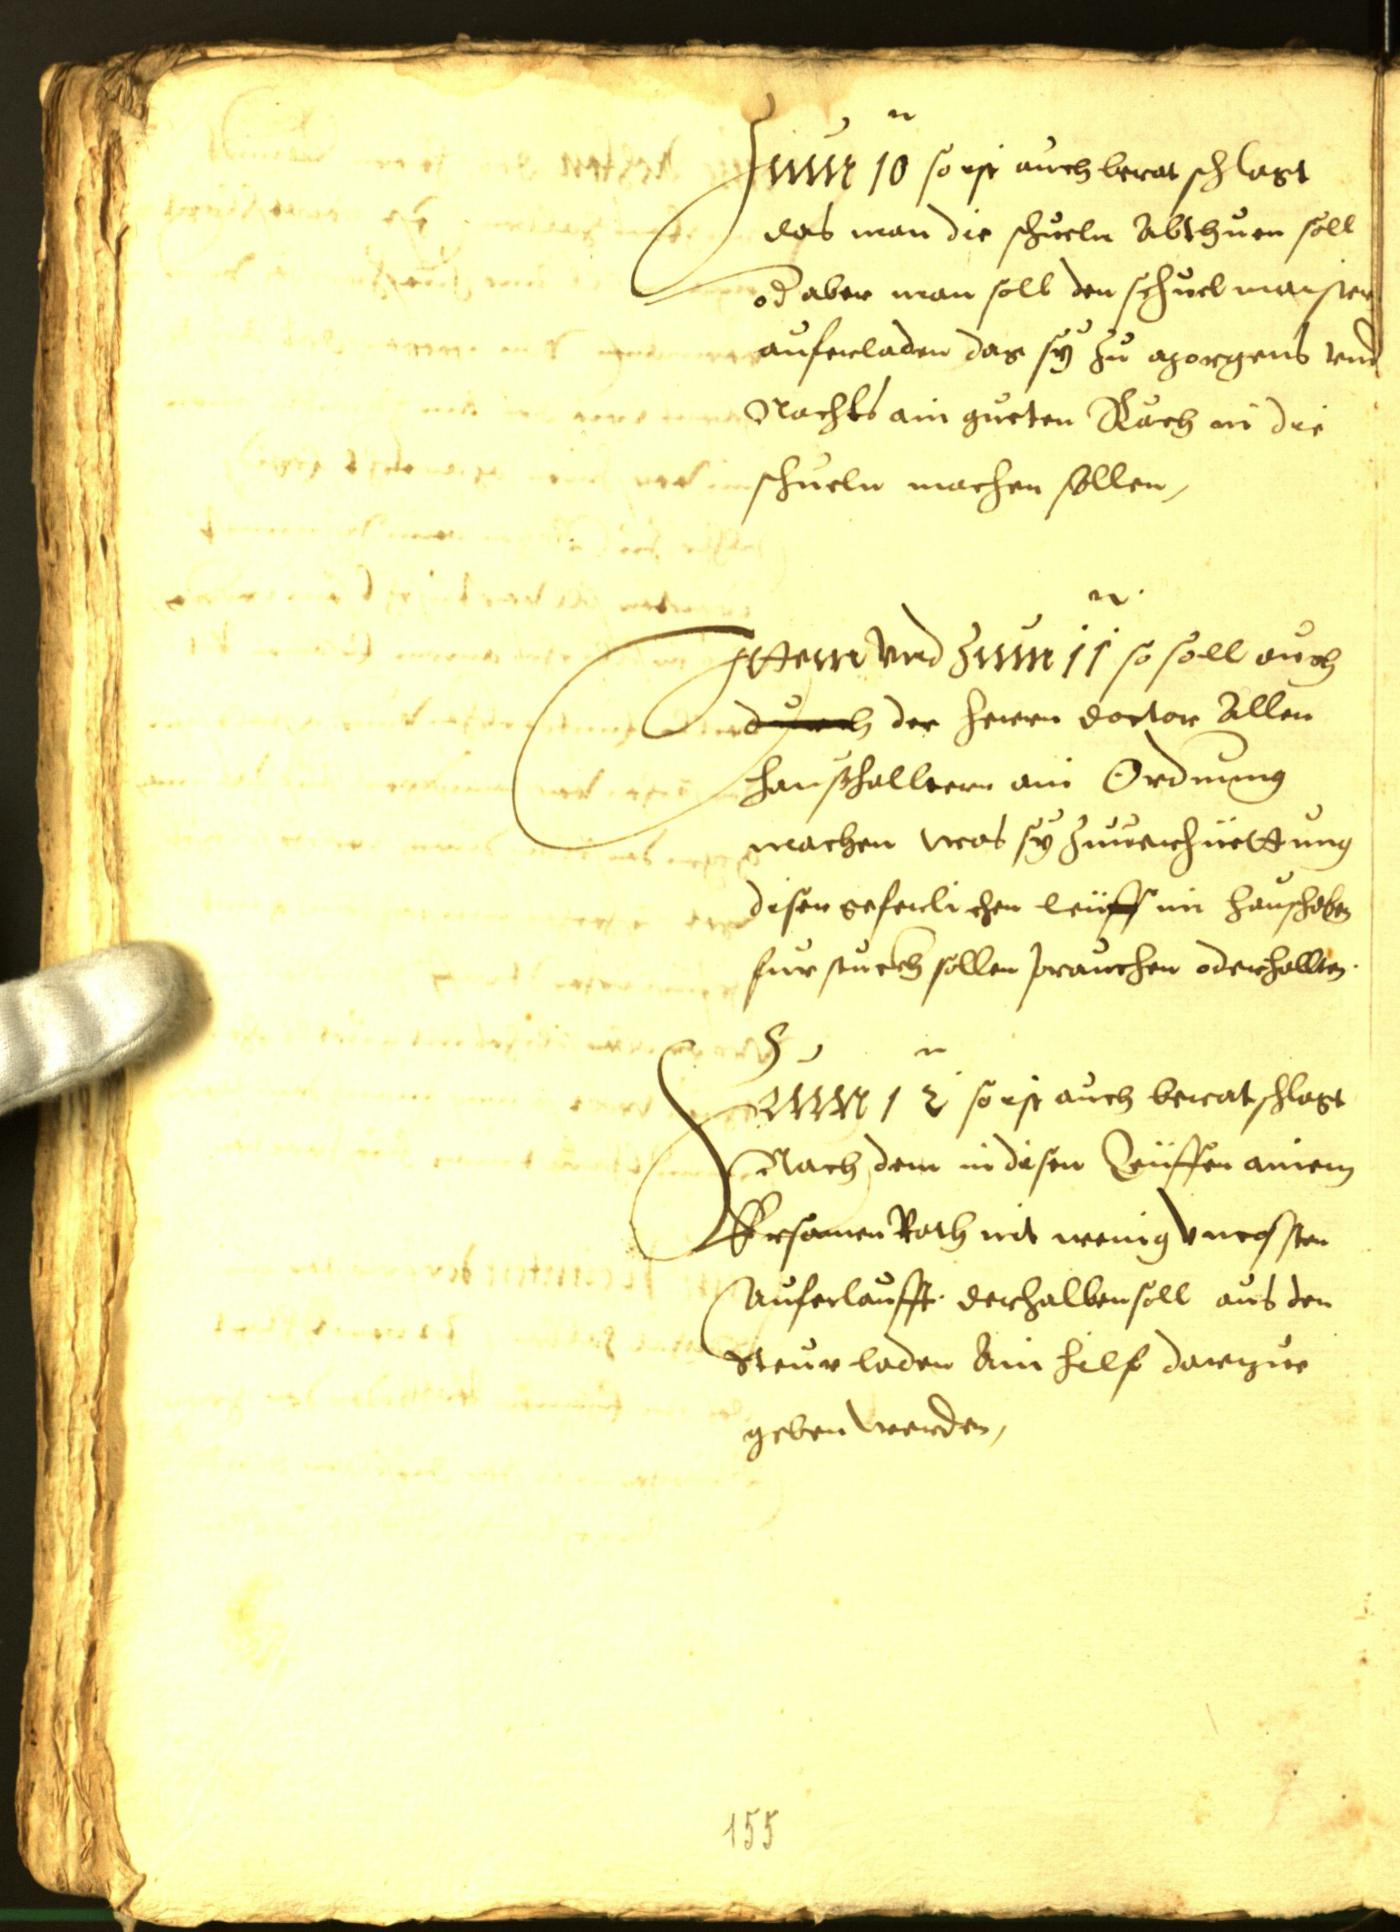 Zum 10 so ist auch beratschlagt
das man die schueln Abthuen soll
od aber man soll den schuelmaister
auferladen das sy zu morgens vnd
Nachts ain gueten Rauch in die
schueln machen sollen,
Item vnd zum 11 so soll auch
durch der herrn doctor Allen
haußhalltern ain Ordnung
machen was sy zuuerhüettung
diser geferlichen leüff im haushaben
fur stuckh sollen prauchen oder hallten.
Zum 12 so ist auch beratschlagt
Nach dem in disen Leüffen ainem
Ersamen Rath nit wenig vncossten
Auferlaufft. derhalben soll aus den
Steurladen Ain hilf darzue
geben werden,
155